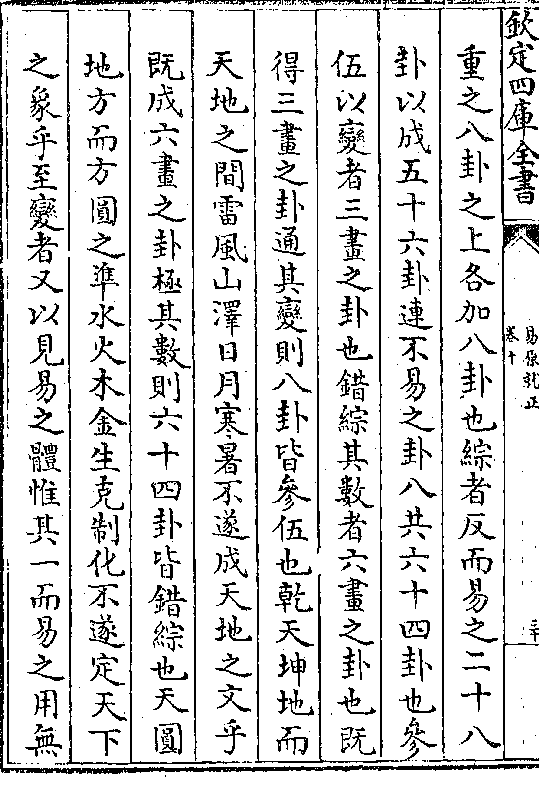 欽定四庫全書
易像鈔正
卷十
二十
重之八卦之上各加八卦也綜者反而易之二十八
卦以成五十六卦連不易之卦八共六十四卦也參
伍以變者三畫之卦也錯綜其數者六畫之卦也既
得三畫之卦通其變則八卦皆參伍也乾天坤地而
天地之間雷風山澤日月寒暑不遂成天地之文乎
既成六畫之卦極其數則六十四卦皆錯綜也天圓
地方而方圓之準水火木金生克制化不遂定天下
之象乎至變者又以見易之體惟其一而易之用無